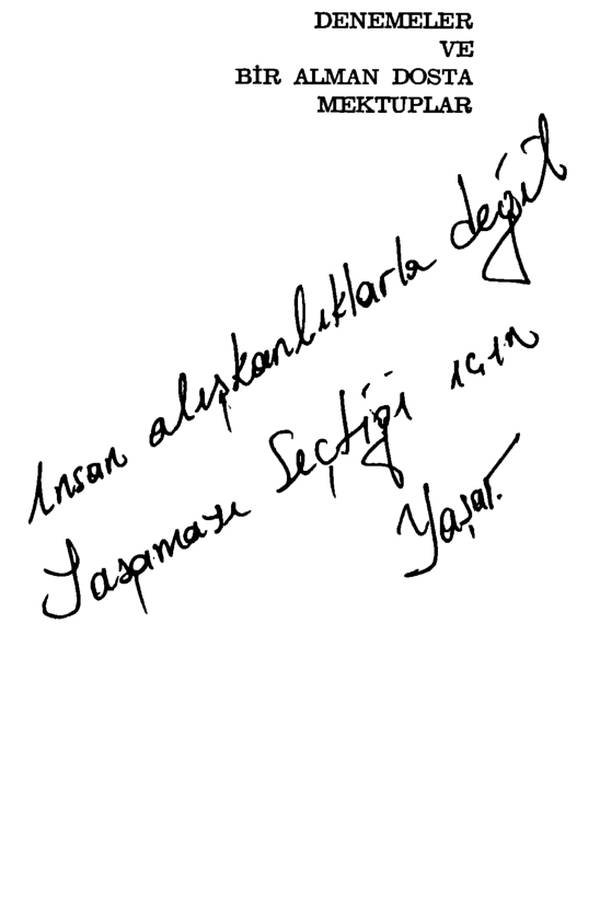 DENEMELER
VE
BİR ALMAN DOSTA
MEKTUPLAR
İnsan alışkanlıklarla değil
Yaşamayı Seçtiği için
Yaşar.